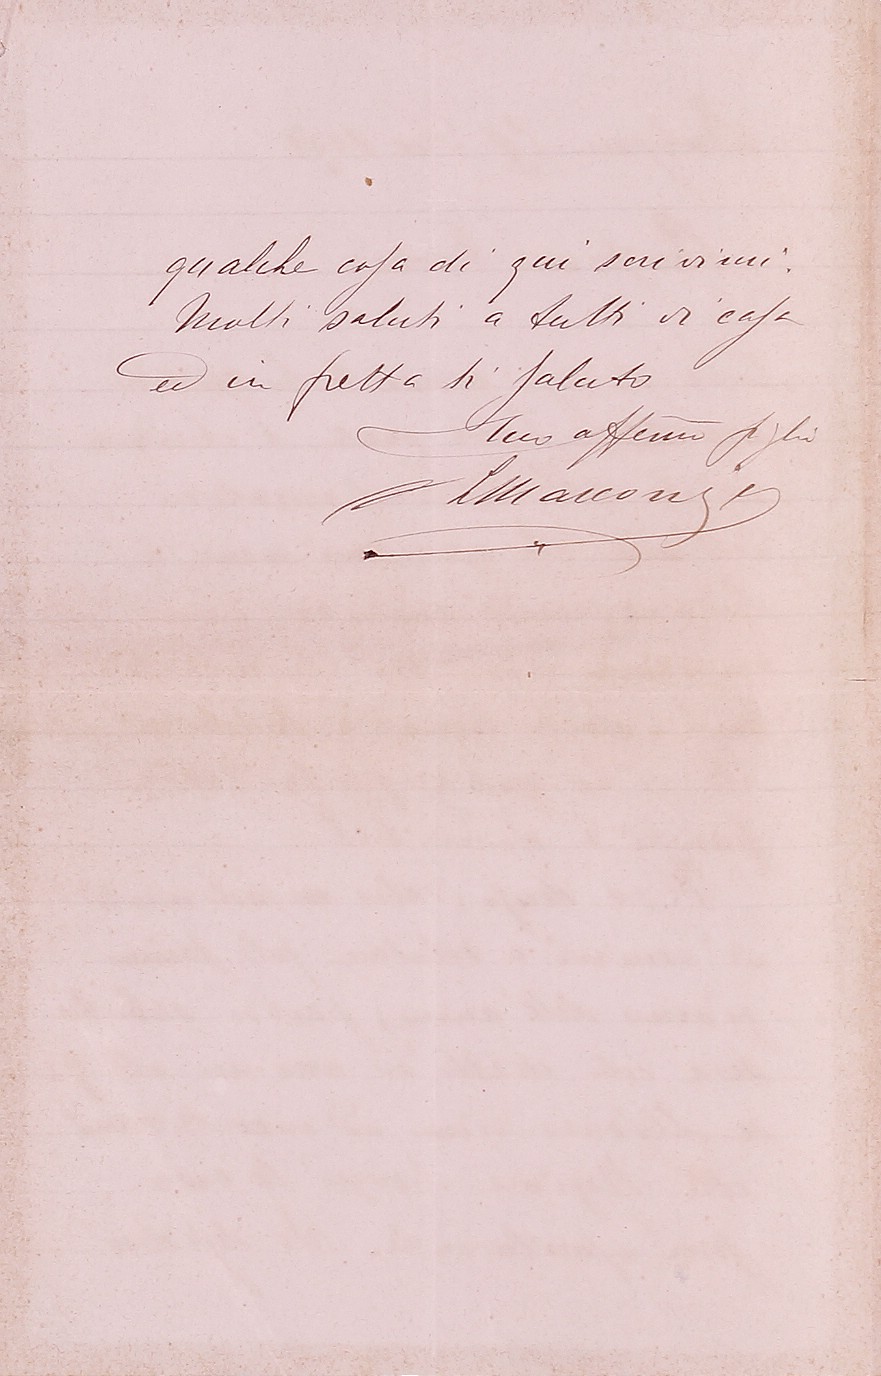 qualche cosa di qui scrivimi.
Molti saluti a tutti di casa
ed in fretta ti saluto
Tuo affemo figlio
LMarconi